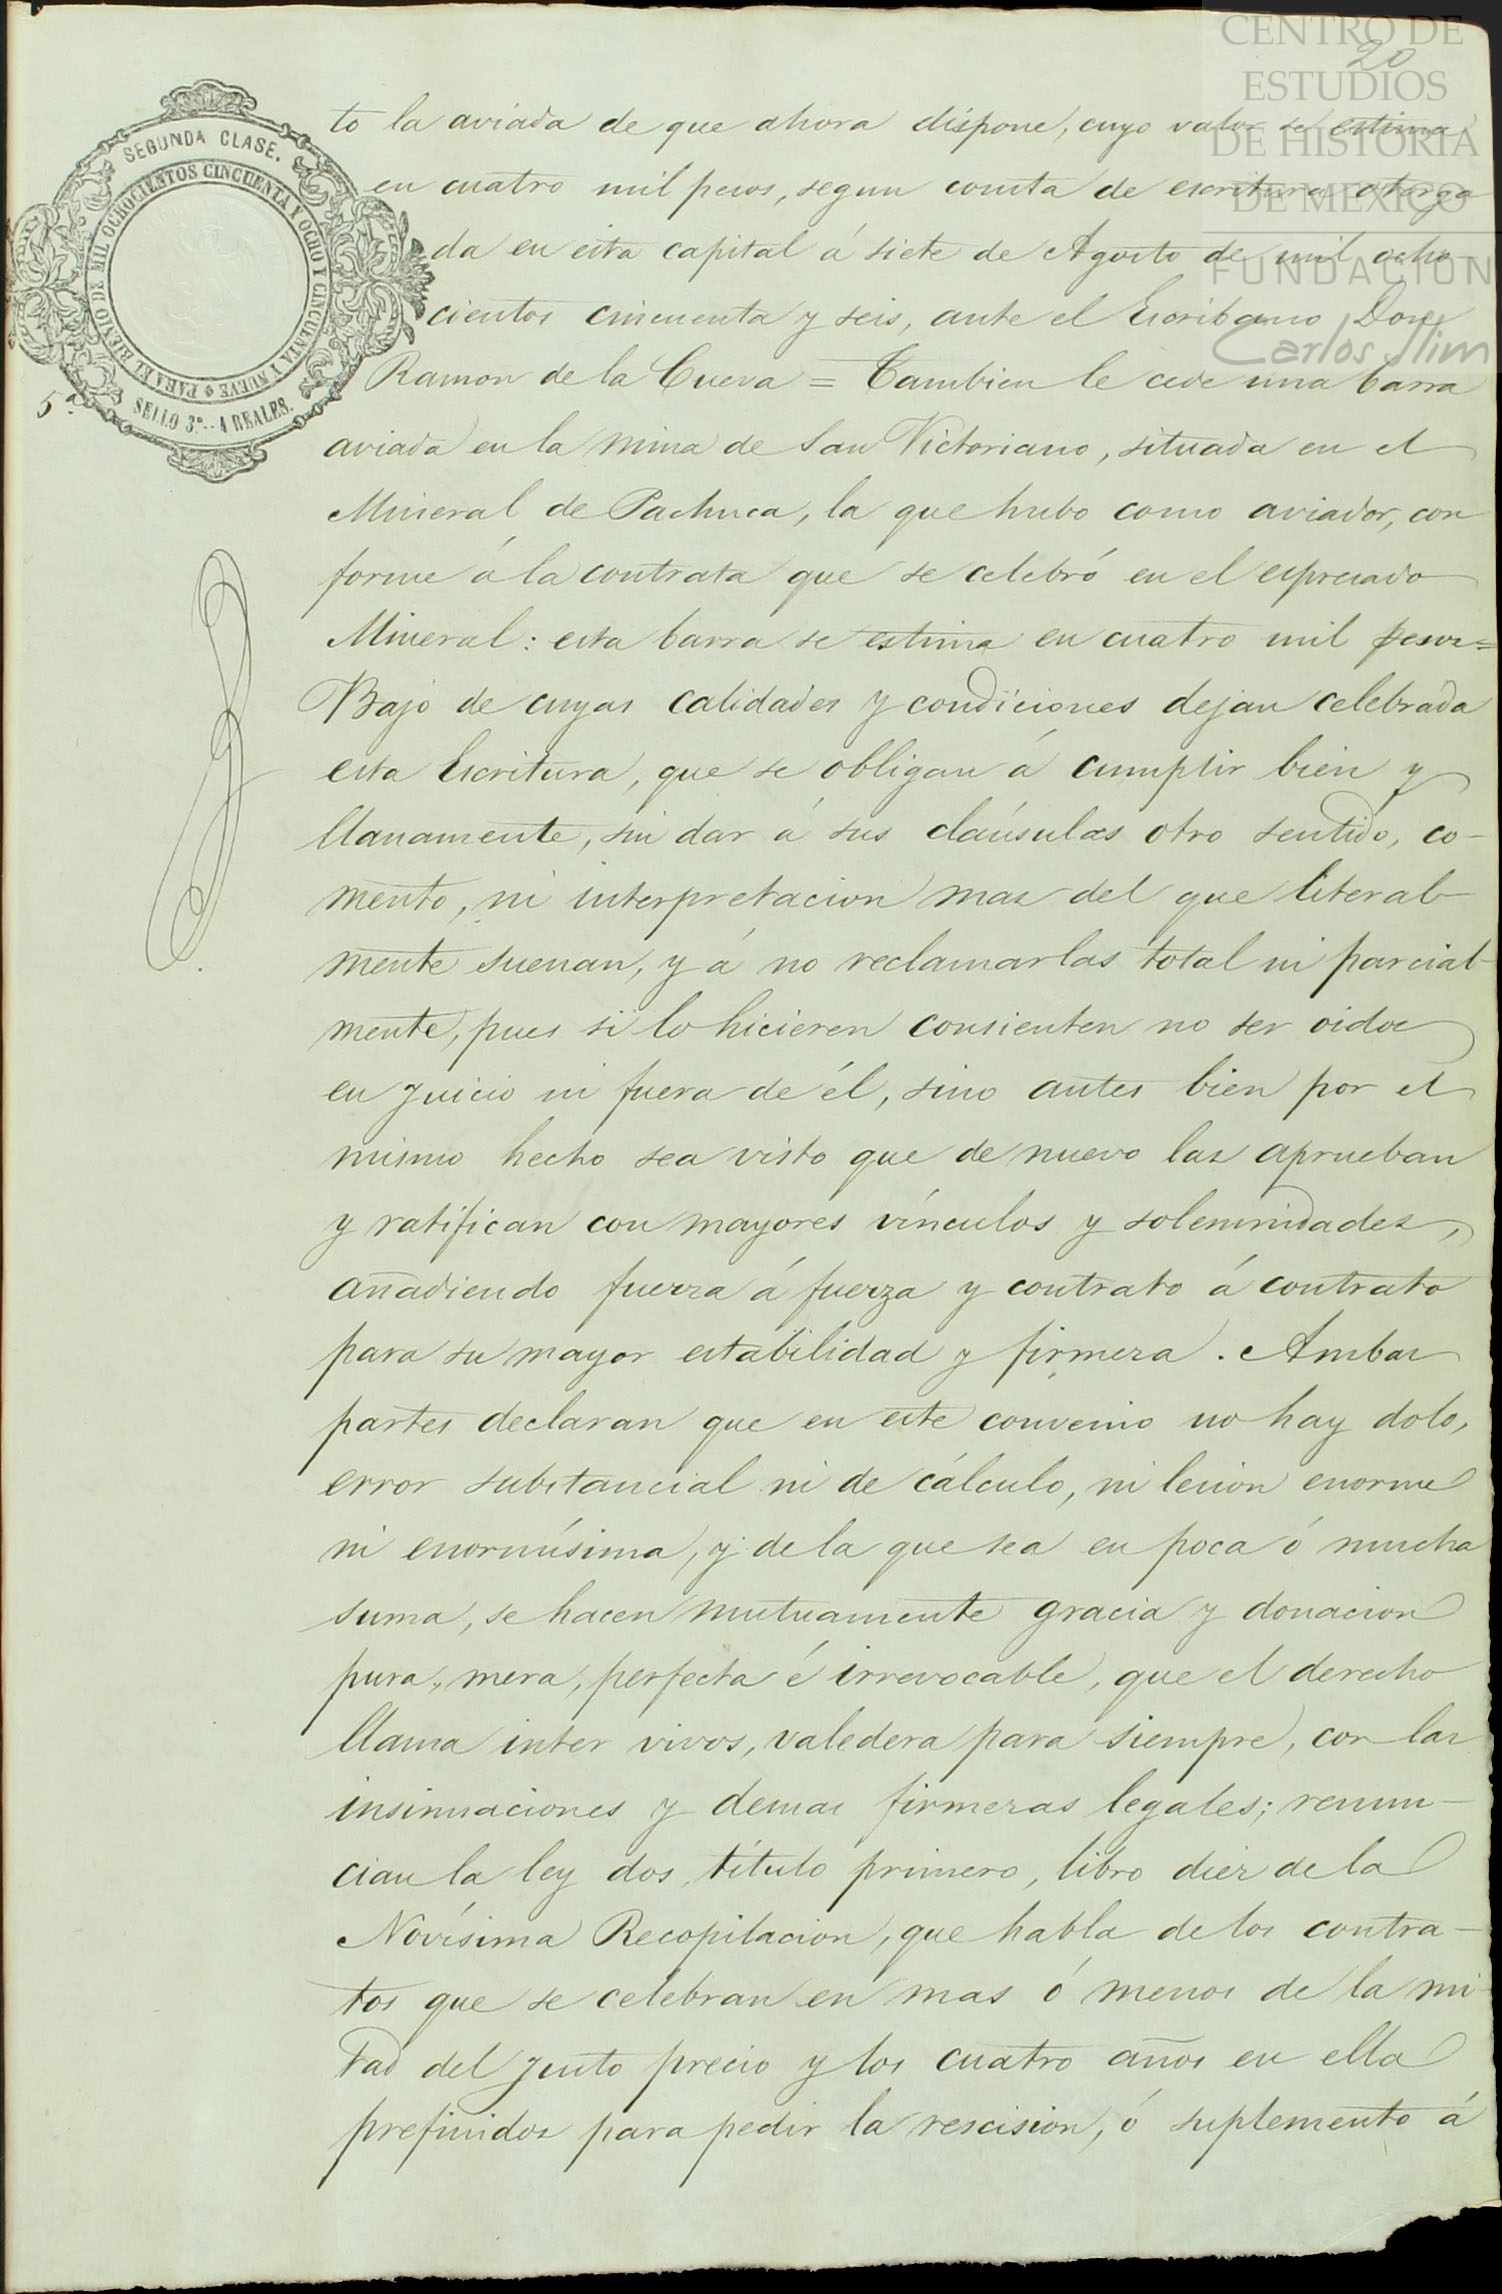 CENTRO DE
ESTUDIOS
DE HISTORIA
DE MEXICO
FUNDACION
Carlos Slim
20
SEGUNDA CLASE.
PARA EL BIENIO DE MIL OCHOCIENTOS CINCUENTA Y OCHO Y CINCUENTA Y NUEVE
SELLO 3º.--4 REALES.
5ª
to la aviada de que ahora dispone, cuyo valor se estima
en cuatro mil pesos, segun consta de escritura otorga
da en esta capital á siete de Agosto de mil ocho
cientos cincuenta y seis, ante el Escribano Don
Ramon de la Cueva = Tambien le cede una barra
aviada en la mina de San Victoriano, situada en el
Mineral de Pachuca, la que hubo como aviador, con
forme á la contrata que se celebró en el espresado
Mineral: esta barra se estima en cuatro mil pesos=
Bajo de cuyas calidades y condiciones dejan celebrada
esta Escritura, que se obligan á cumplir bien y
llanamente, sin dar á sus claúsulas otro sentido, co-
mento, ni interpretacion mas del que literal-
mente suenan, y á no reclamarlas total ni parcial-
mente, pues si lo hicieren consienten no ser oidos
en juicio ni fuera de él, sino antes bien por el
mismo hecho sea visto que de nuevo las aprueban
y ratifican con mayores vínculos y solemnidades,
añadiendo fuerza á fuerza y contrato á contrato
para su mayor estabilidad y firmeza. Ambas
partes declaran que en este convenio no hay dolo,
error substancial ni de cálculo, ni lesion enorme
ni enormísima, y de la que sea en poca ó mucha
suma, se hacen mutuamente gracia y donacion
pura, mera, perfecta é irrevocable, que el derecho
llama inter vivos, valedera para siempre, con las
insinuaciones y demas firmezas legales; renun-
cian la ley dos, título primero, libro diez de la
Novísima Recopilacion, que habla de los contra-
tos que se celebran en mas ó menos de la mi
tad del justo precio y los cuatro años en ella
prefinidos para pedir la rescision, ó suplemento á